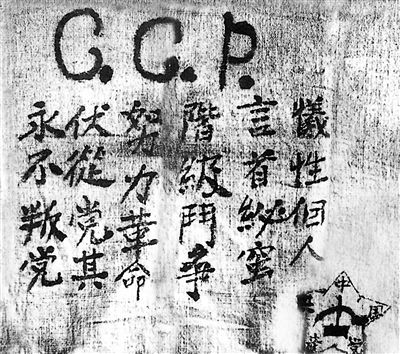 C.C.P.
犧牲個人
言首秘蜜
階級鬥爭
努力革命
伏從党其
永不叛党
中